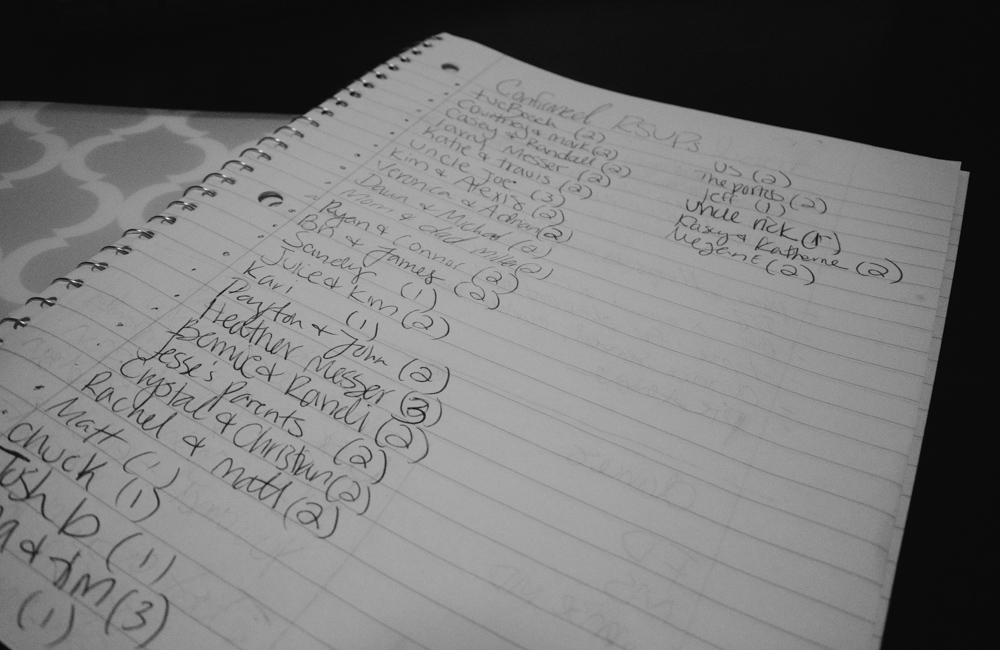 Confirmed RSVPs
Courtney & mark (2)
Casey & Randall (2)
Tammy Messer (2)
Katie & travis (2)
Uncle Joe (3)
Kim & Alexis (2)
Veronica & Adrian (2)
Dawn & Michael (2)
Mom & dad (2)
Ryan & Connor (2)
Bp & James (2)
Sandy (1)
Juice & Kim (2)
Kari (1)
Payton & John (2)
Heather Messer (3)
Bernie & Randi (2)
Jesse's Parents (2)
Crystal & Christian (2)
Rachel & matt (2)
Matt (1)
Chuck (1)
Josh b (1)
& Jim (3)
(1)
US (2)
The (2)
Jeff (1)
Uncle rick (1)
Kasey & Katherine (2)
Megan (2)